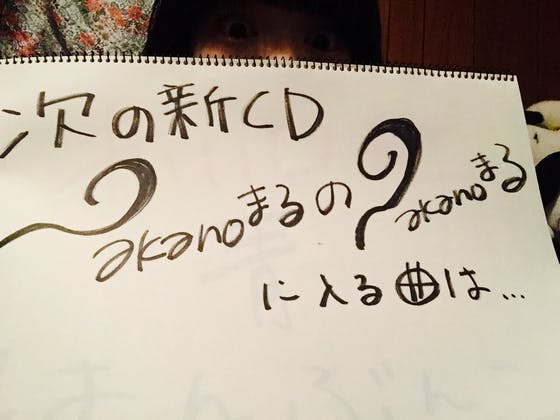 次の新CD
?akanoまるの?akanoまる
に入る曲は…